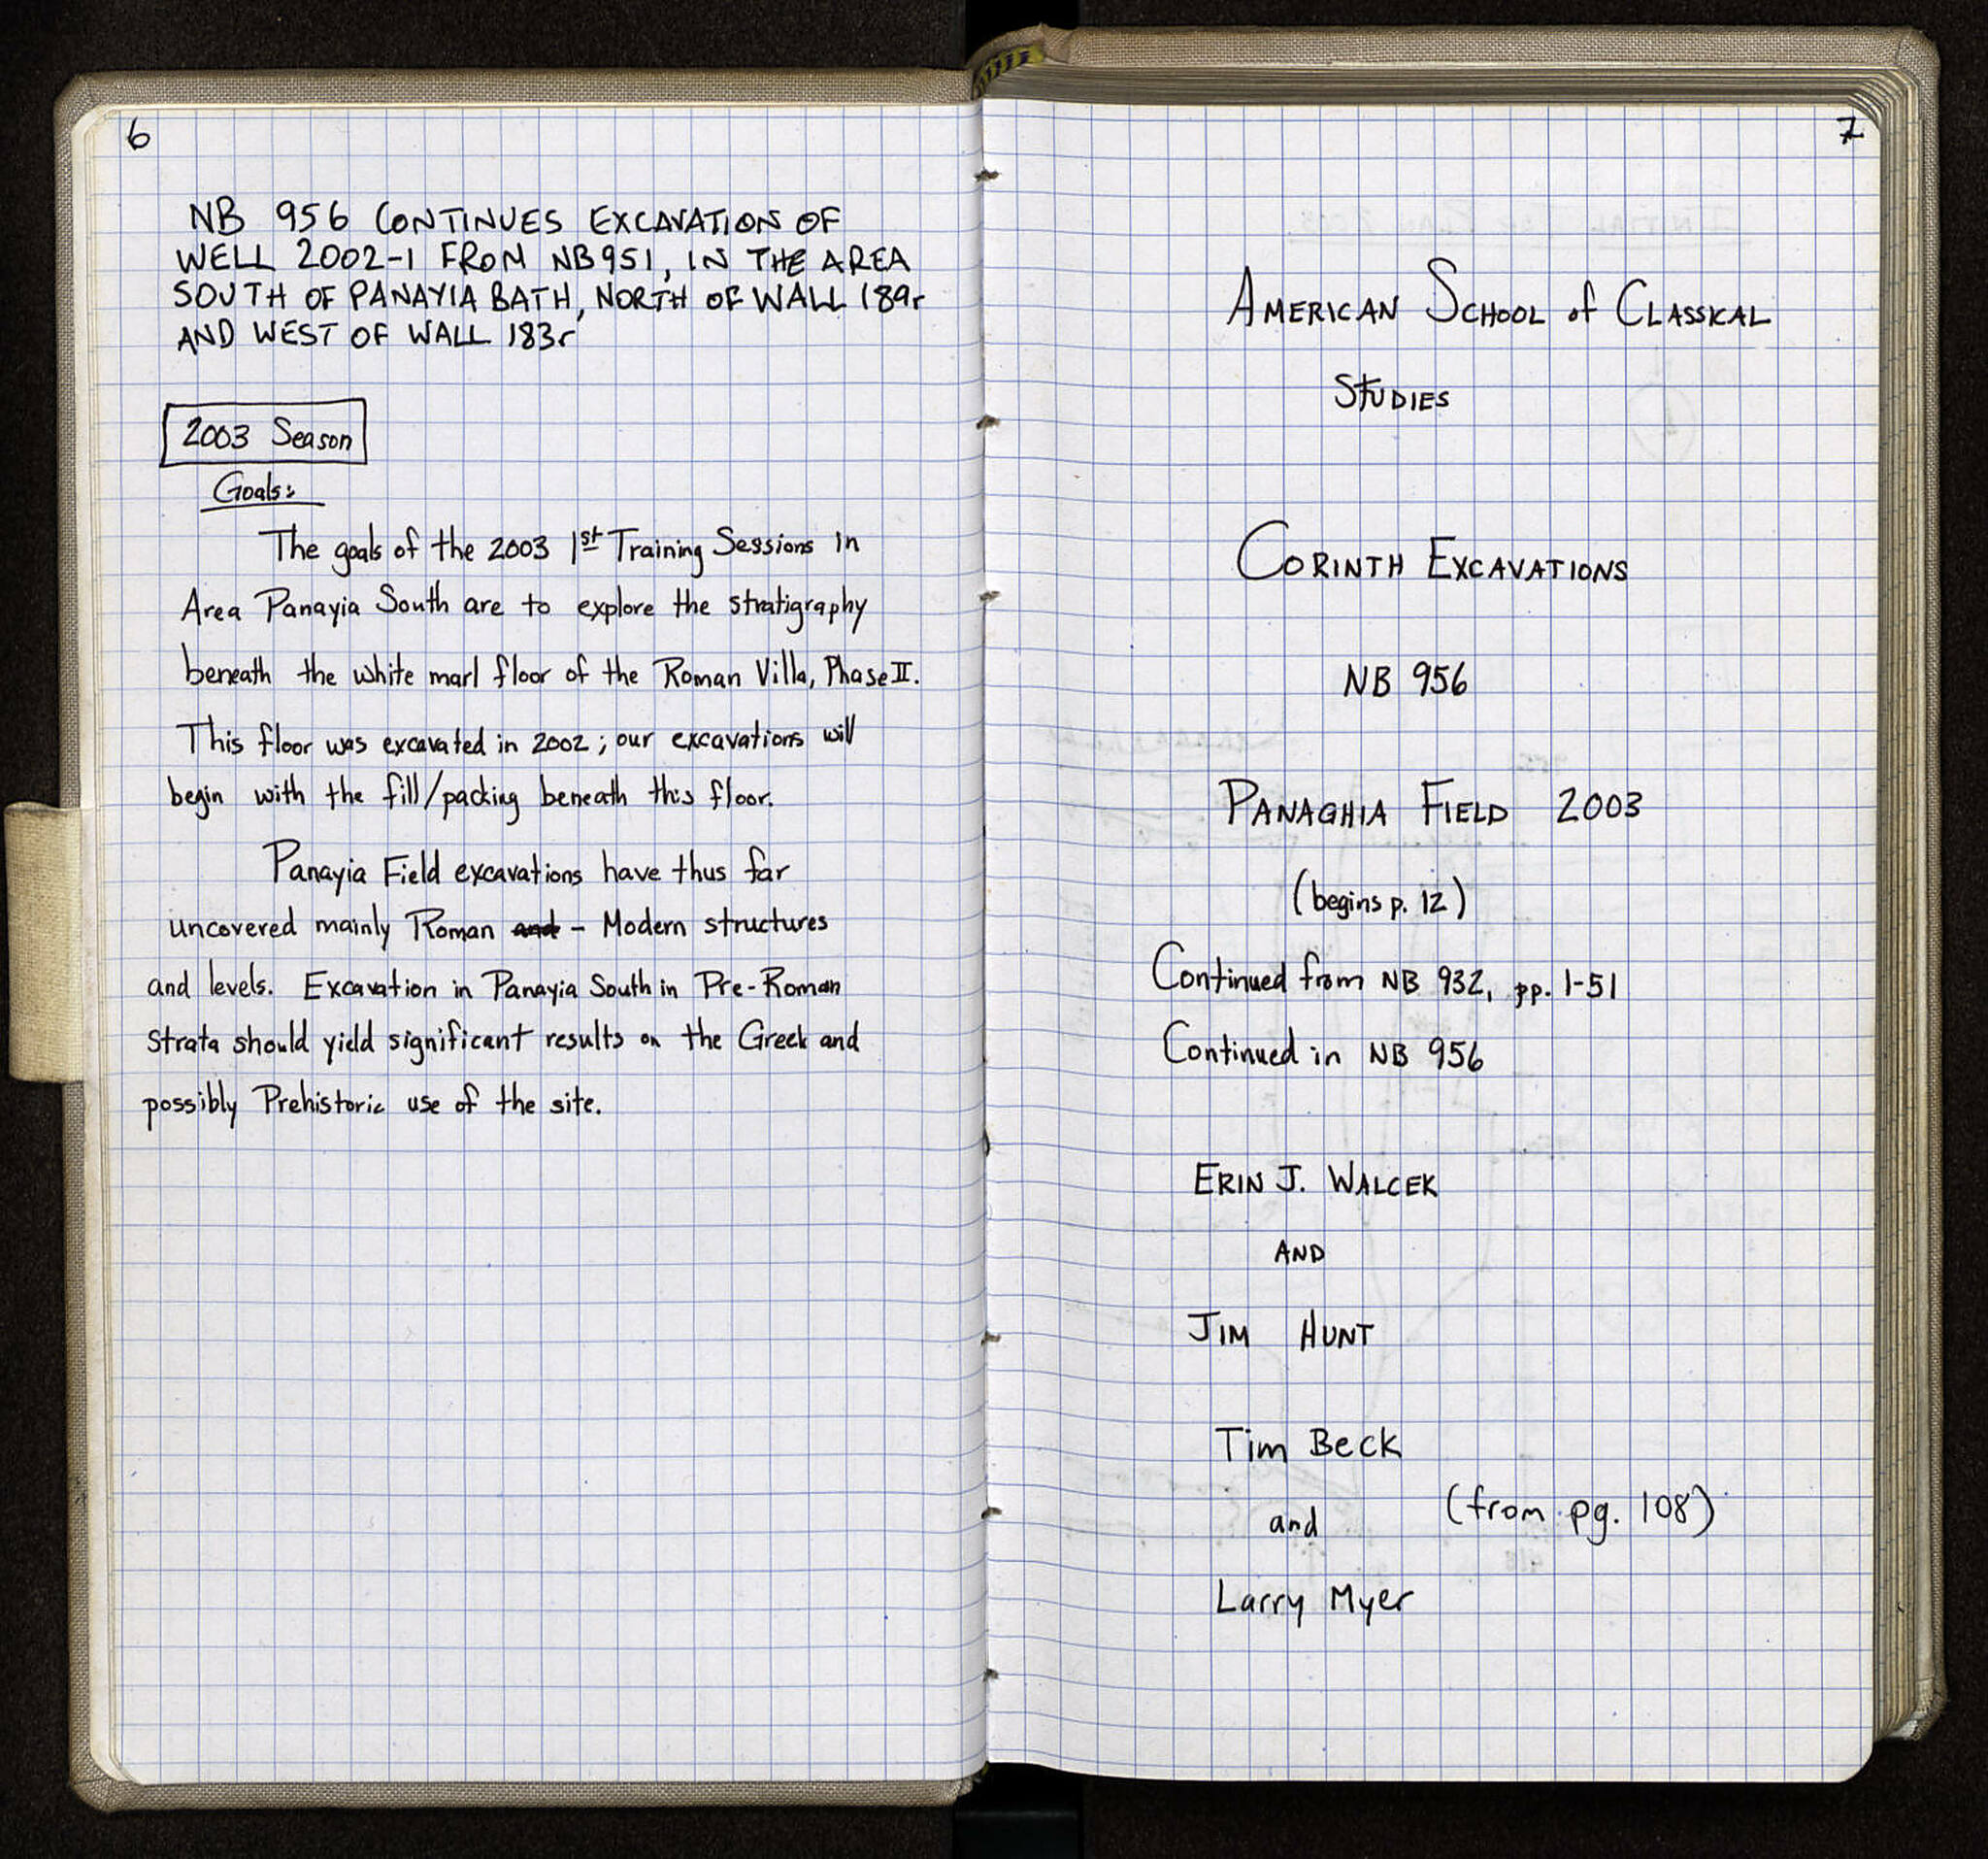 6
NB 956 CONTINUES EXCAVATION OF
WELL 2002-1 FROM NB951, IN THE AREA
SOUTH OF PANAYIA BATH, NORTH OF WALL 189r
AND WEST OF WALL 183r
2003 Season
Goals:
The goals of the 2003 1st Training Sessions in
Area Panayia South are to explore the stratigraphy
beneath the white marl floor of the Roman Villa, Phase II.
This floor was excavated in 2002; our excavations will
begin with the fill/packing beneath this floor.
Panayia Field excavations have thus far
uncovered mainly Roman and - Modern structures
and levels. Excavation in Panayia South in Pre-Roman
Strata should yield significant results on the Greek and
possibly Prehistoric use of the site.
7
AMERICAN SCHOOL of CLASSICAL
STUDIES
CORINTH EXCAVATIONS
NB 956
PANAGHIA FIELD 2003
(begins p. 12)
Continued from NB 932, pp. 1-51
Continued in NB 956
ERIN J. WALCEK
AND
JIM HUNT
Tim Beck
and (from pg. 108)
Larry Myer